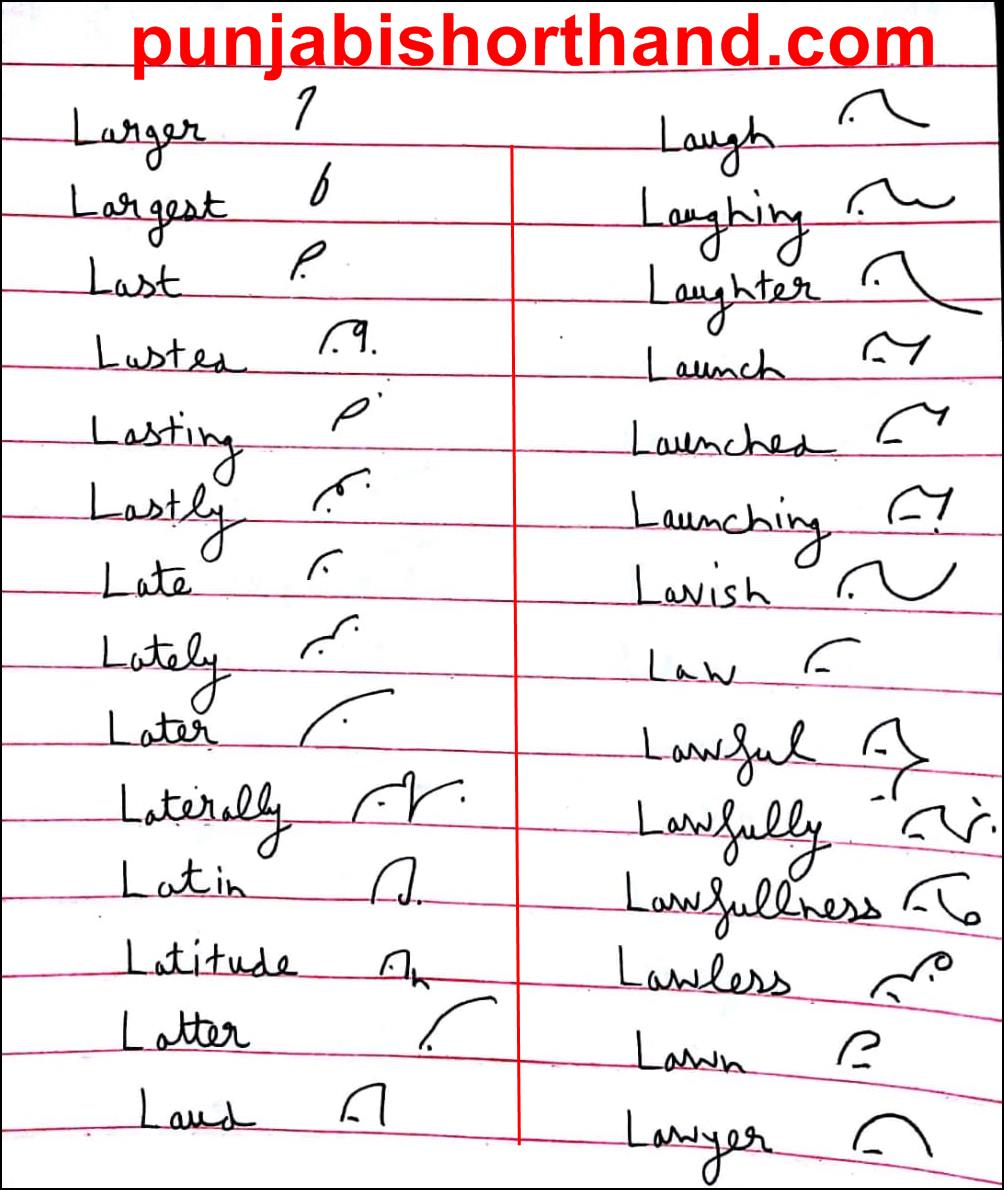 punjabishorthand.com
Larger
Largest
Last
Lasted
Lasting
Lastly
Late
Lately
Later
Laterally
Latin
Latitude
Latter
Laud
Laugh
Laughing
Laughter
Launch
Launched
Launching
Lavish
Law
Lawful
Lawfully
Lawfullness
Lawless
Lawn
Lawyer